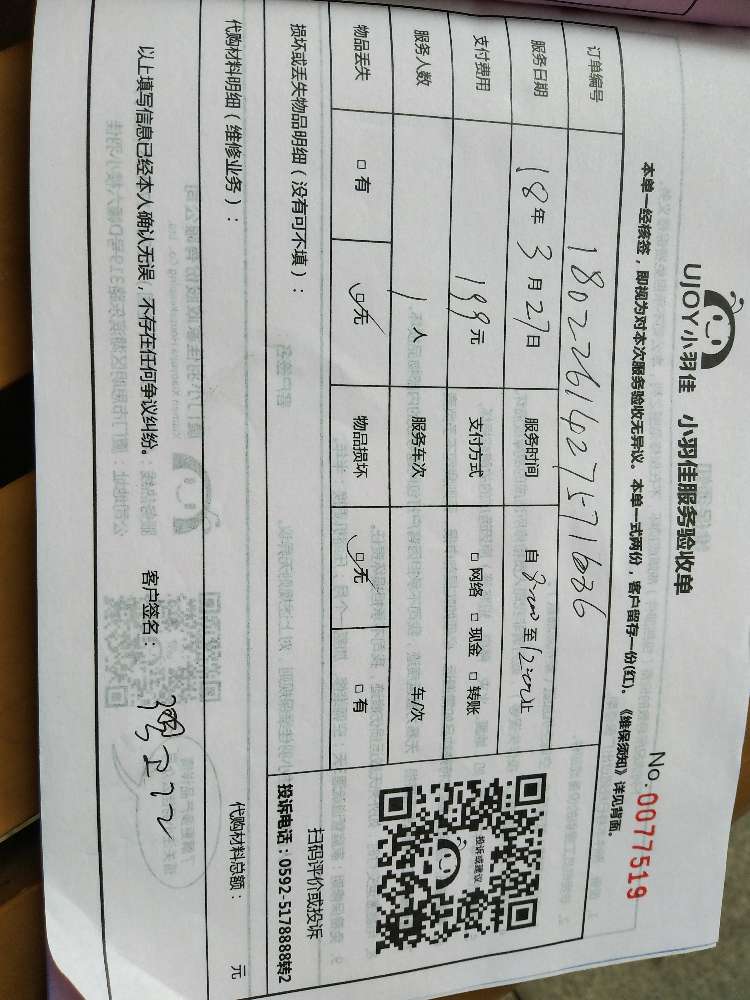 UJOY小羽佳 小羽佳服务验收单
No:0077519
本单一经核签，即视为对本次服务验收无异议。本单一式两份，客户留存一份(红)。《维保须知》详见背面。
订单编号 180226142757​1636
服务日期 18年3月27日 服务时间 自8:00至12:00止
支付费用 199元 支付方式 □网络 □现金 □转账
服务人数 1人 服务车次 车/次
物品丢失 □有 ☑无 物品损坏 ☑无 □有
投诉或建议
扫码评价或投诉
投诉电话：0592-5178888转2
损坏或丢失物品明细（没有可不填）：
代购材料明细（维修业务）：
代购材料总额： 元
以上填写信息已经本人确认无误，不存在任何争议纠纷。 客户签名：